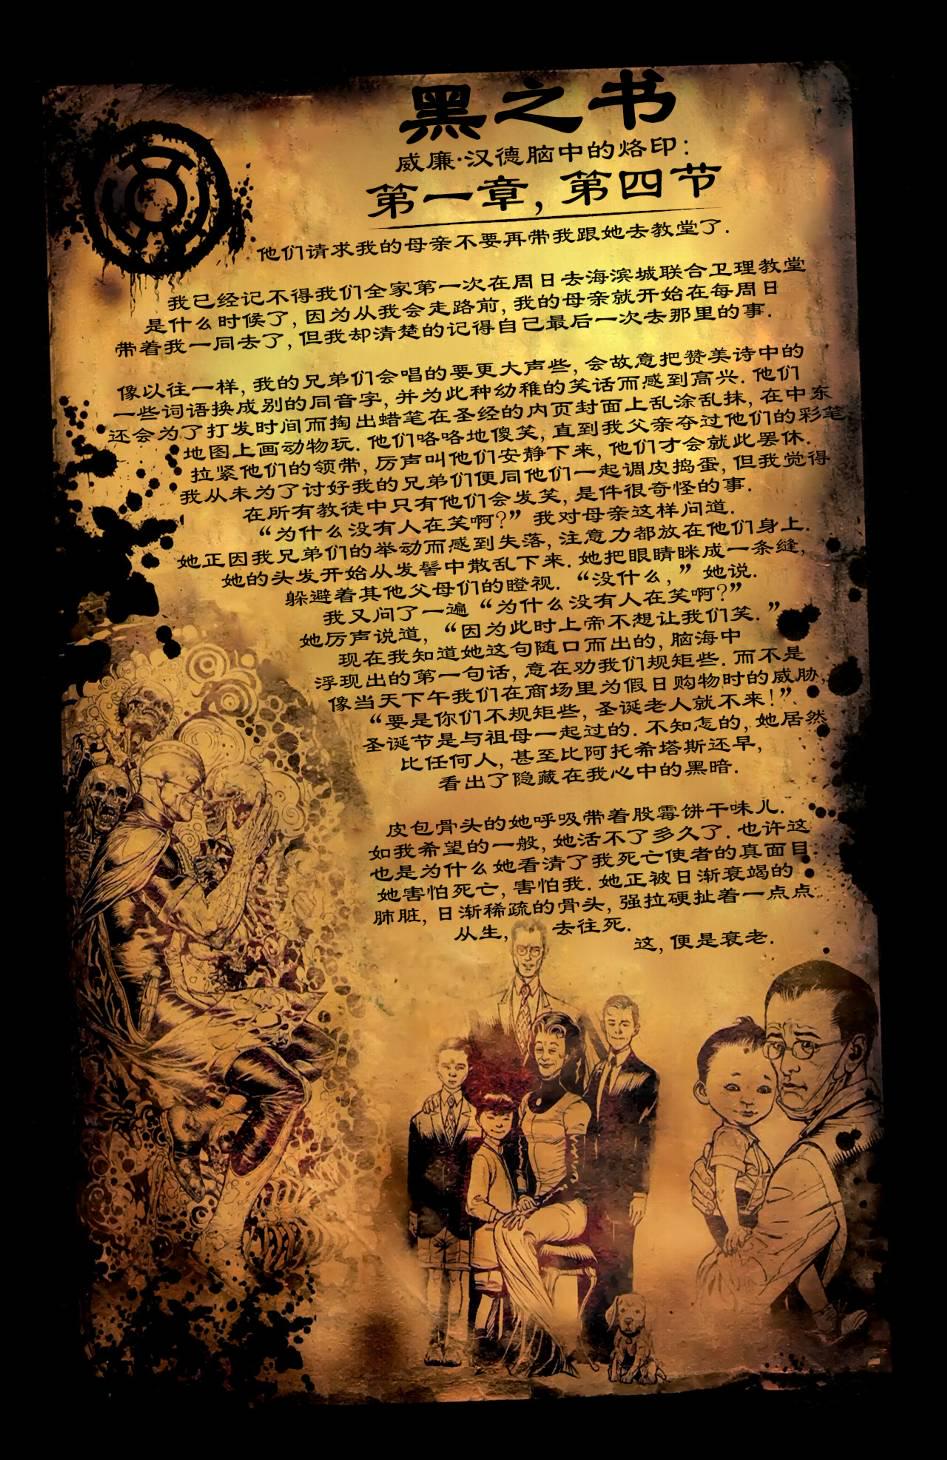 黑之书
威廉·汉德脑中的烙印：
第一章，第四节
他们请求我的母亲不要再带我跟她去教堂了.
我已经记不得我们全家第一次在周日去海滨城联合卫理教堂
是什么时候了，因为从我会走路前，我的母亲就开始在每周日
带着我一同去了，但我却清楚的记得自己最后一次去那里的事.
像以往一样，我的兄弟们会唱的要更大声些，会故意把赞美诗中的
一些词语换成别的同音字，并为此种幼稚的笑话而感到高兴. 他们
还会为了打发时间而掏出蜡笔在圣经的内页封面上乱涂乱抹，在中东
地图上画动物玩. 他们咯咯地傻笑，直到我父亲夺过他们的彩笔
拉紧他们的领带，厉声叫他们安静下来，他们才会就此罢休.
我从未为了讨好我的兄弟们便同他们一起调皮捣蛋，但我觉得
在所有教徒中只有他们会发笑，是件很奇怪的事.
“为什么没有人在笑啊?” 我对母亲这样问道.
她正因我兄弟们的举动而感到失落，注意力都放在他们身上.
她的头发开始从发髻中散乱下来. 她把眼睛眯成一条缝，
躲避着其他父母们的瞪视. “没什么，” 她说.
我又问了一遍 “为什么没有人在笑啊?”
她厉声说道，“因为此时上帝不想让我们笑. ”
现在我知道她这句随口而出的，脑海中
浮现出的第一句话，意在劝我们规矩些. 而不是
像当天下午我们在商场里为假日购物时的威胁，
“要是你们不规矩些，圣诞老人就不来！”.
圣诞节是与祖母一起过的. 不知怎的，她居然
比任何人，甚至比阿托希塔斯还早，
看出了隐藏在我心中的黑暗.
皮包骨头的她呼吸带着股霉饼干味儿.
如我希望的一般，她活不了多久了. 也许这
也是为什么她看清了我死亡使者的真面目.
她害怕死亡，害怕我. 她正被日渐衰竭的
肺脏，日渐稀疏的骨头，强拉硬扯着一点点
从生， 去往死.
这，便是衰老.